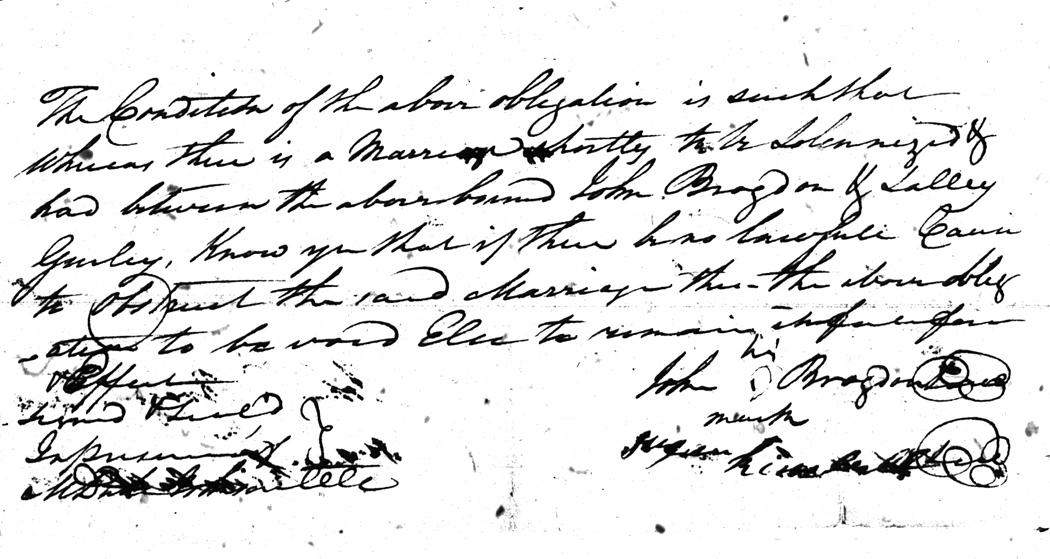 The Condition of the above obligation is such that
Whereas there is a Marriage shortly to be Solemnized &
had between the above bound John Bragdon & Salley
Gurley, Know ye that if there be no lawfull Cause
to Obstruct the said Marriage then the above oblig
-ation to be void Else to remain in full force
& Effect
Signed & Seal'd
In presence of
John his Bragdon Seal
mark
Seal